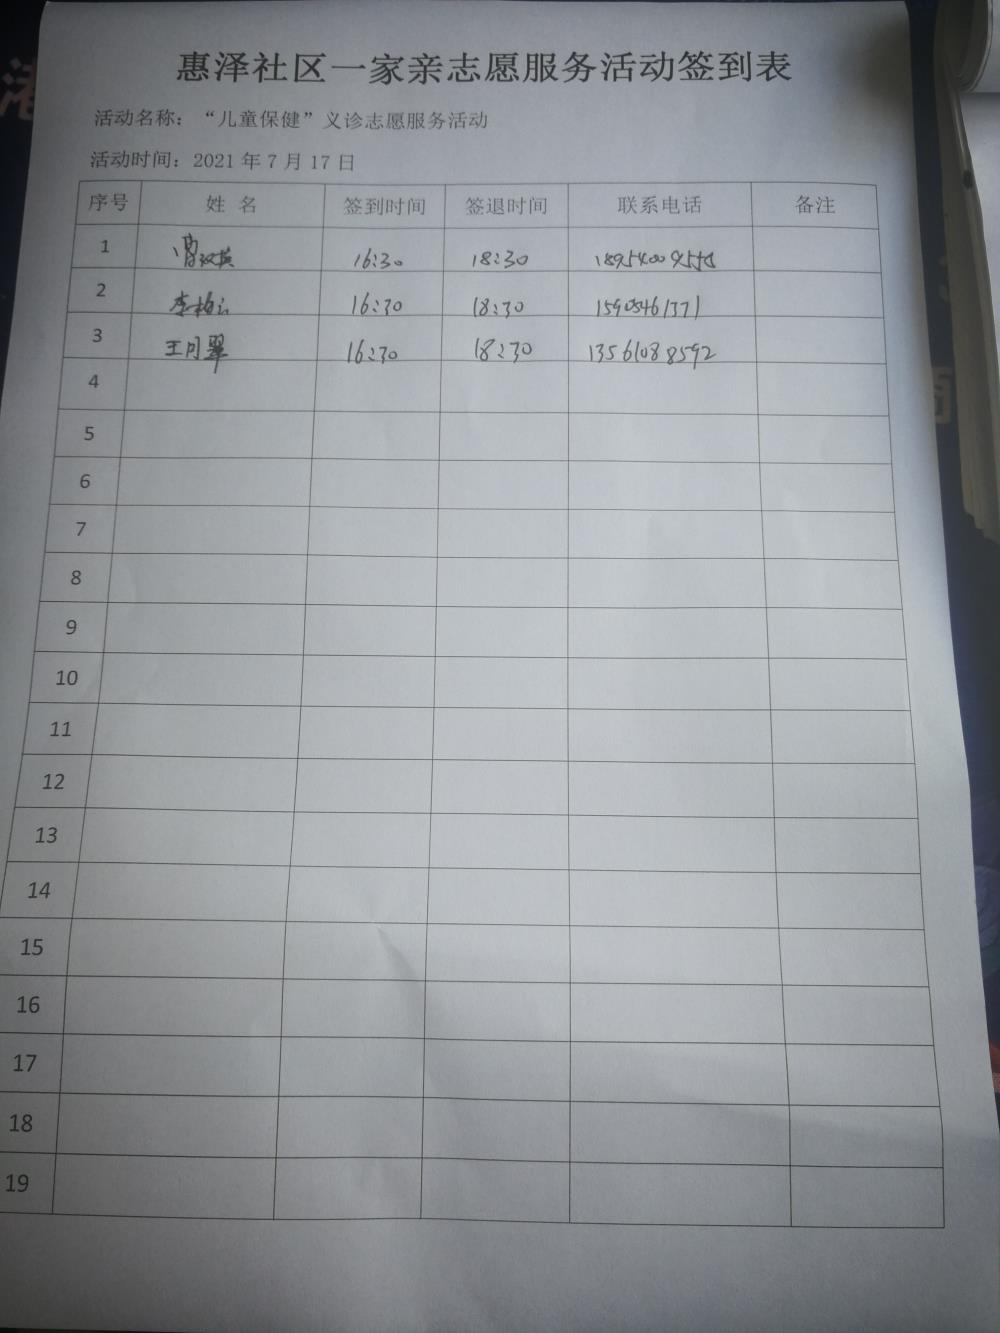 惠泽社区一家亲志愿服务活动签到表
活动名称：“儿童保健”义诊志愿服务活动
活动时间：2021 年 7 月 17 日
序号 姓 名 签到时间 签退时间 联系电话 备注
1 16:30 18:30
2 16:30 18:30 15905461371
3 王月翠 16:30 18:30 13561088592
4
5
6
7
8
9
10
11
12
13
14
15
16
17
18
19